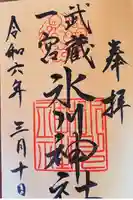 奉拝
武蔵一宮
氷川神社
令和六年三月十日